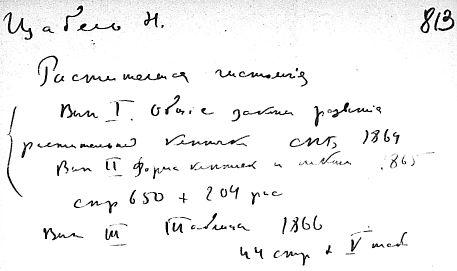 Цабель Н. 813
Растительная гистология
Вып I. Общие законы развития
растительной клеточки СПб, 1864
Вып II Форма клеточек и 1865
стр 650 + 204 рис
Вып III Таблица 1866
44 стр & V таб